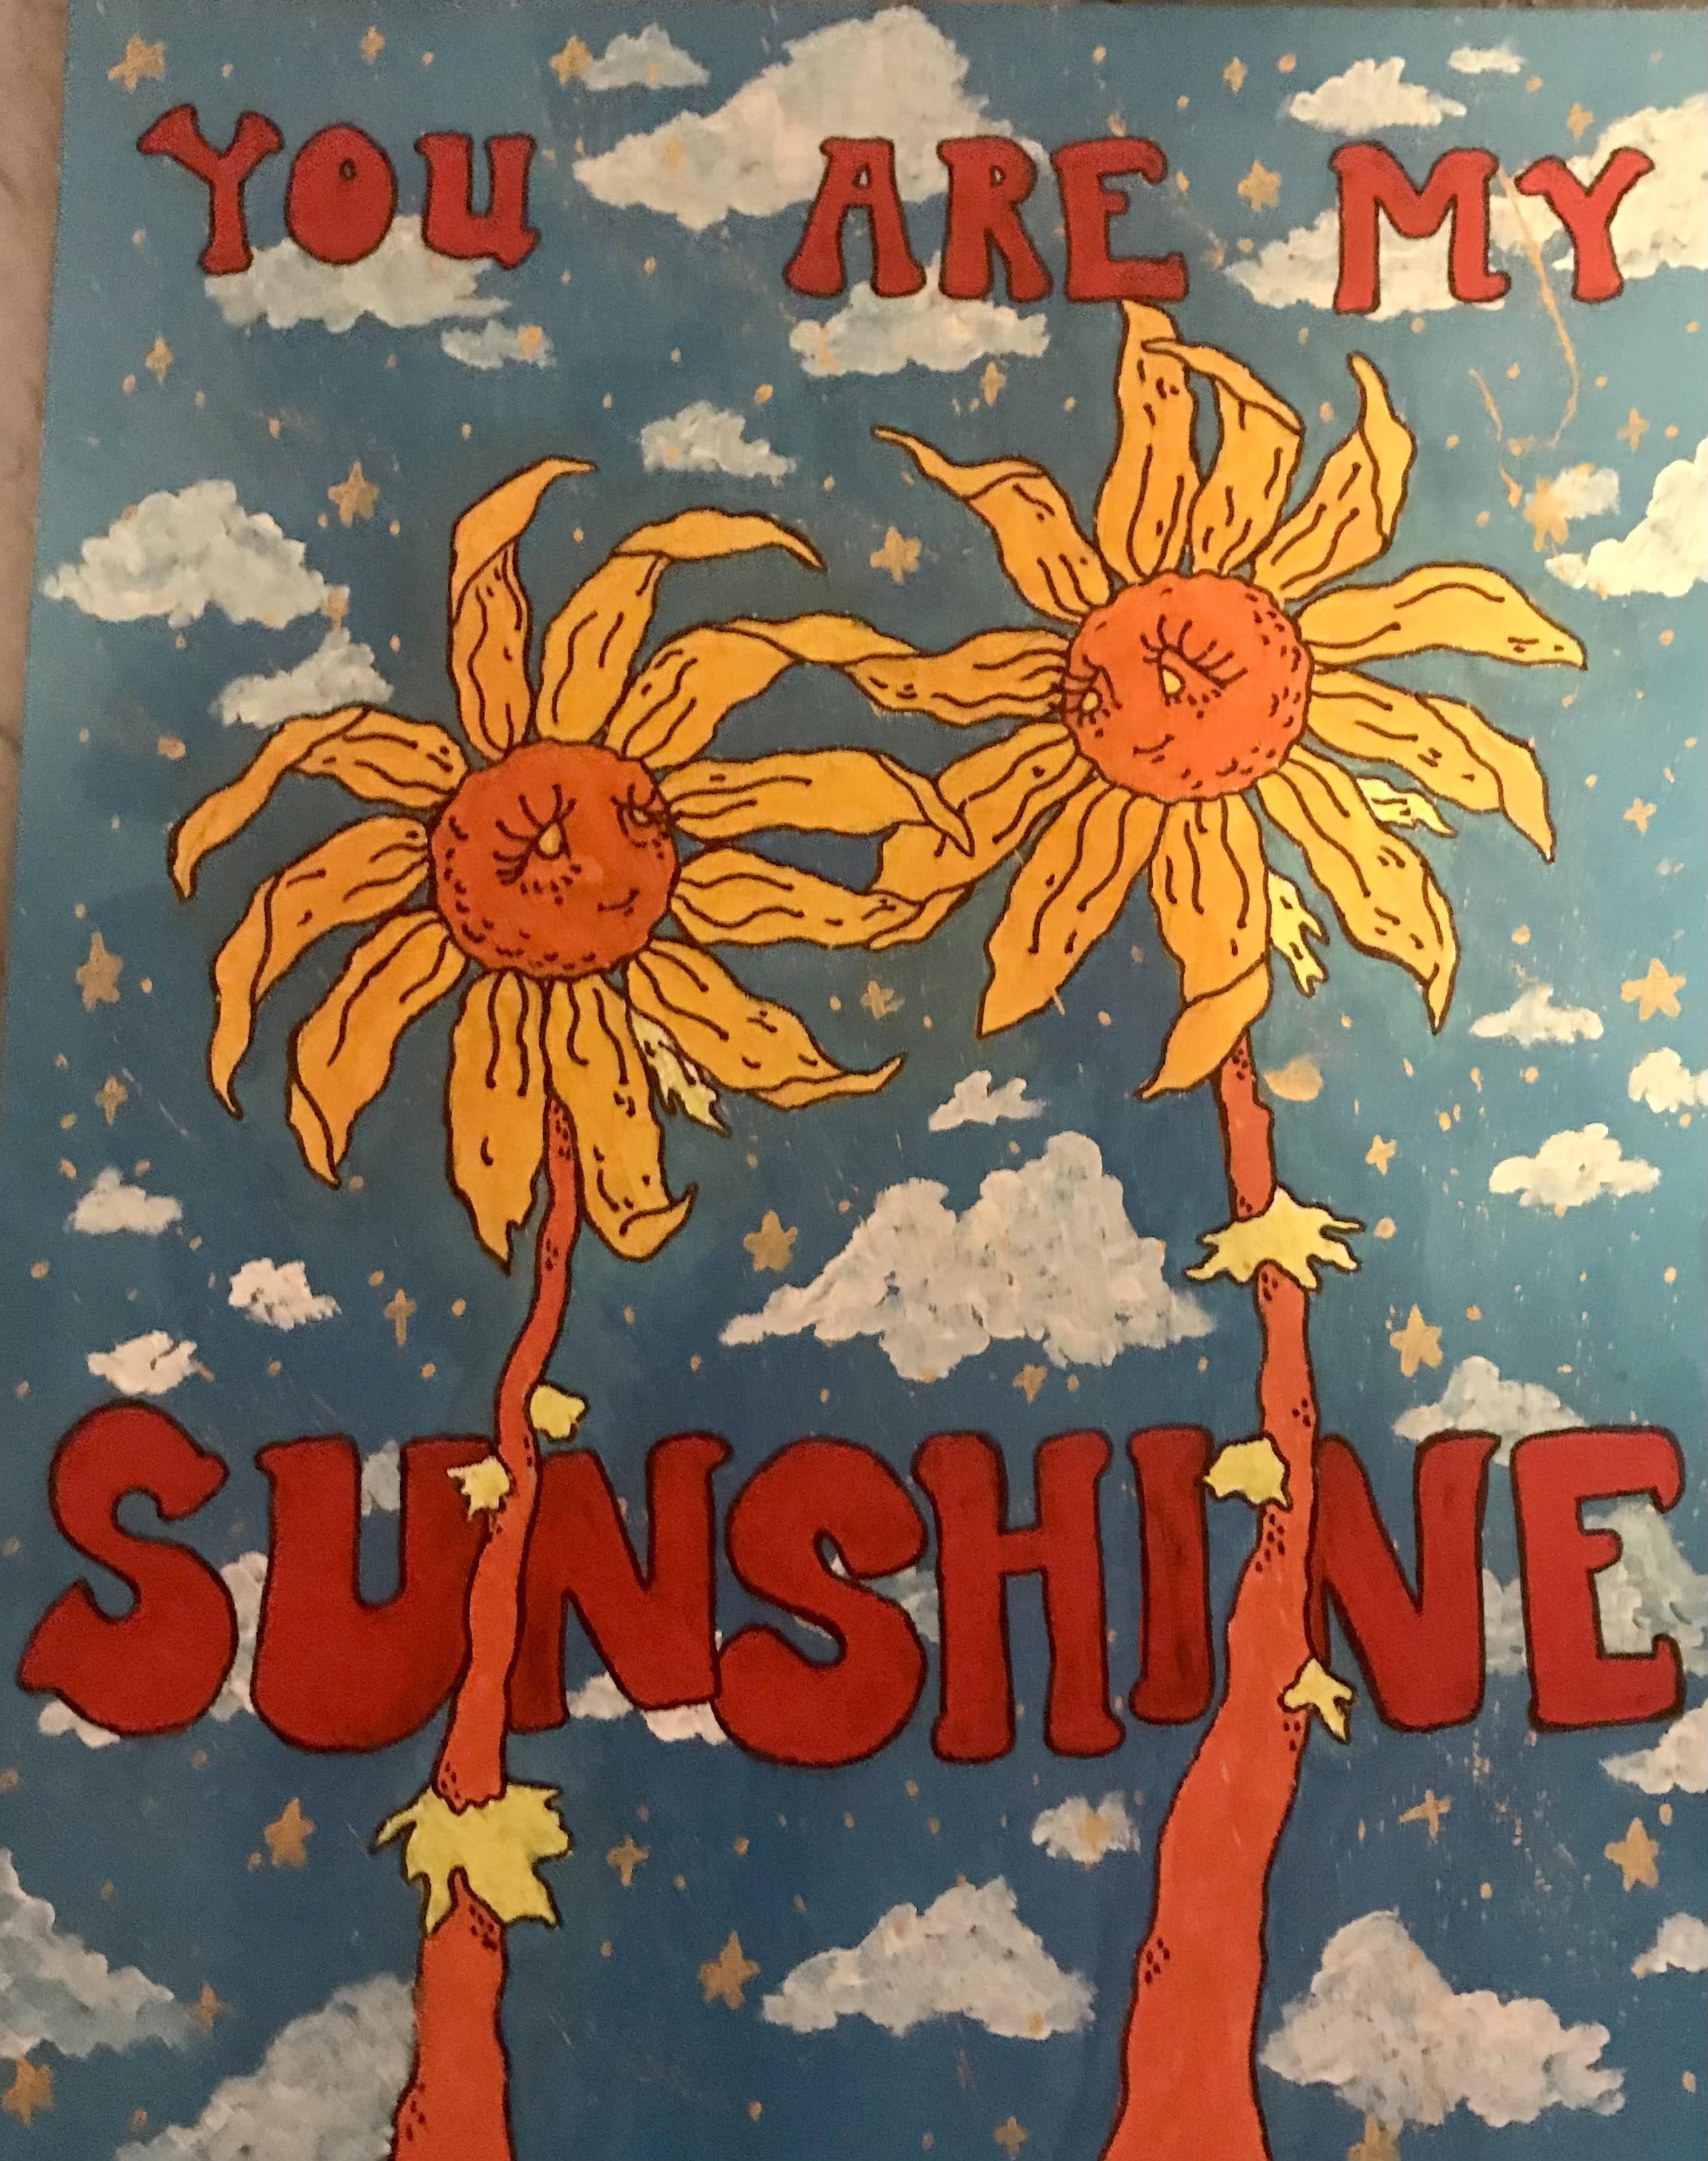 YOU ARE MY
SUNSHINE